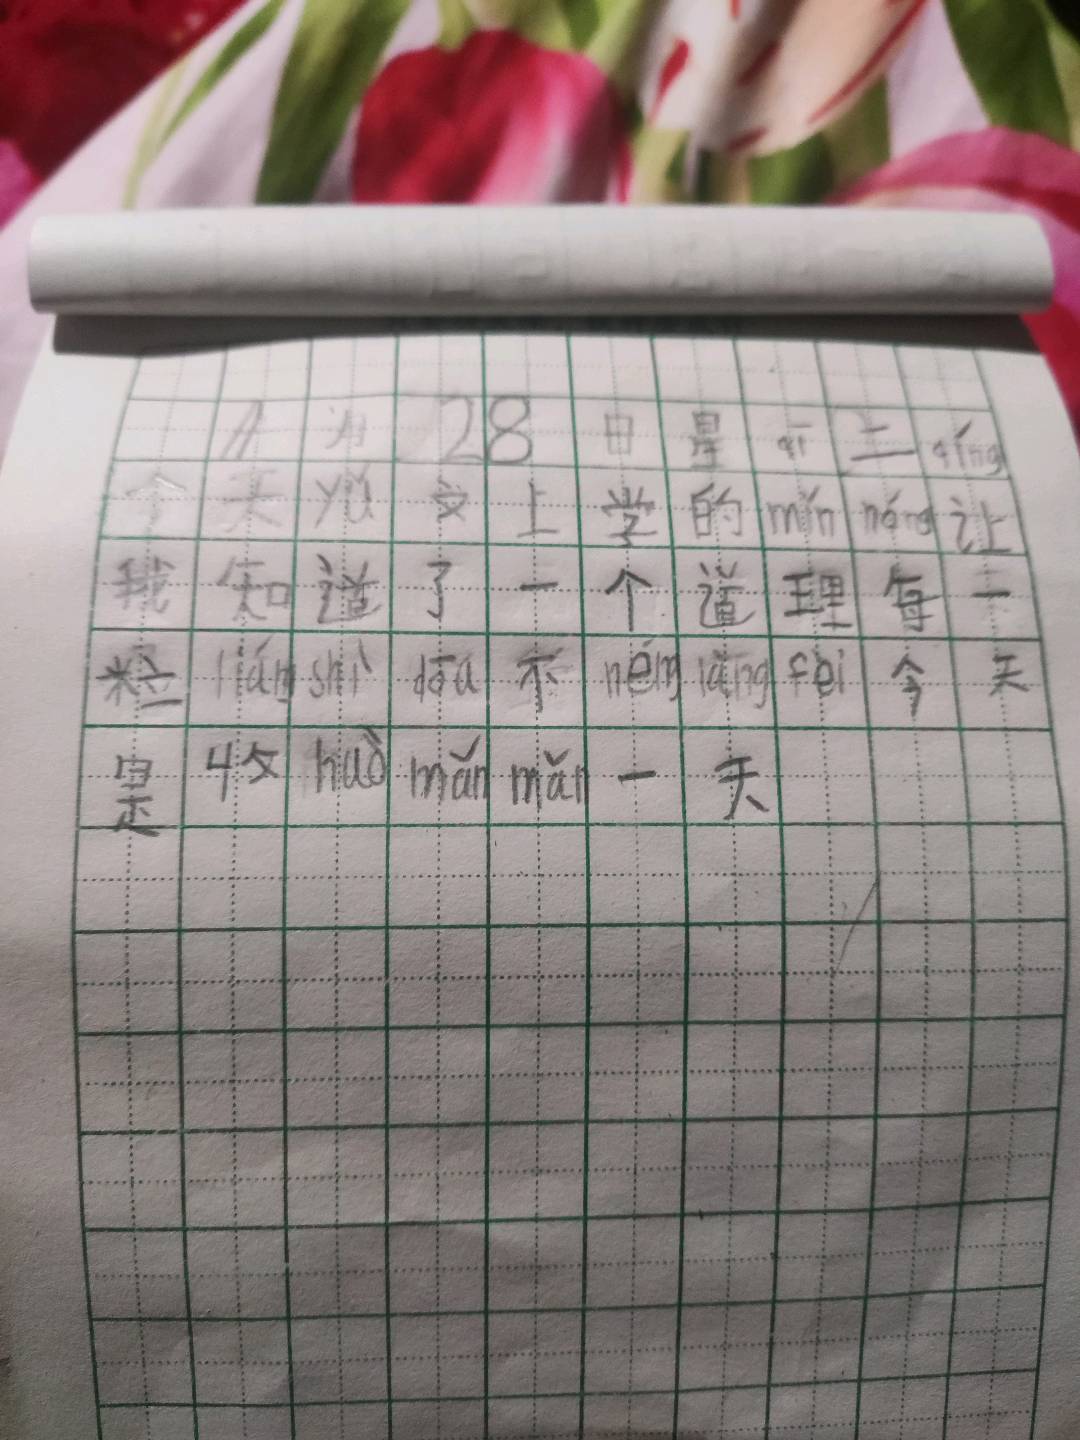 八月28日星qī二qíng
今天yǔ文上学的mǐn nóng让
我知道了一个道理每一
粒liáng shì dōu不néng làng fèi今天
是收huò mǎn mǎn一天